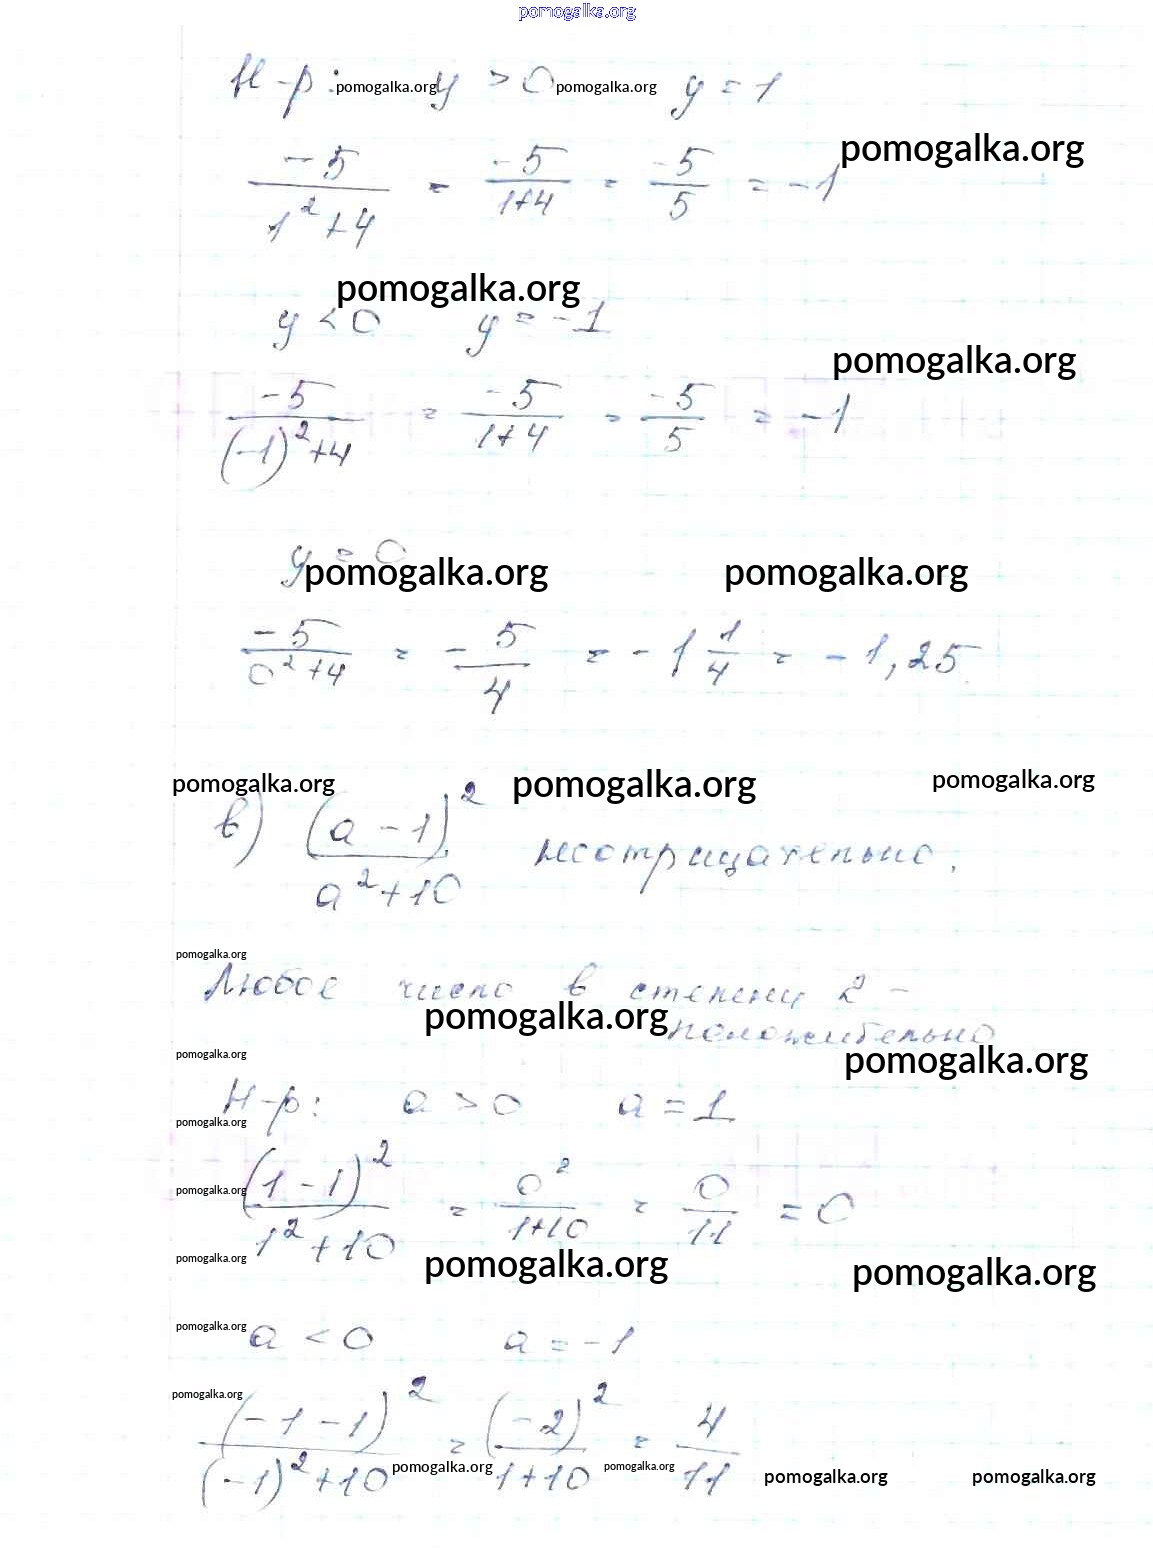 pomogalka.org
Н-р: pomogalka.org y > 0 pomogalka.org y = 1
pomogalka.org
-5/(1²+4) = -5/(1+4) = -5/5 = -1
pomogalka.org
y < 0 y = -1
pomogalka.org
-5/((-1)²+4) = -5/(1+4) = -5/5 = -1
y = 0
pomogalka.org pomogalka.org
-5/(0²+4) = -5/4 = -1 1/4 = -1,25
pomogalka.org pomogalka.org pomogalka.org
в) (a-1)²/(a²+10) неотрицательно.
pomogalka.org
Любое число в степени 2 -
pomogalka.org
положительно
pomogalka.org pomogalka.org
Н-р: a > 0 a = 1
pomogalka.org
pomogalka.org
(1-1)²/(1²+10) = 0²/(1+10) = 0/11 = 0
pomogalka.org pomogalka.org pomogalka.org
pomogalka.org
a < 0 a = -1
pomogalka.org
(-1-1)²/((-1)²+10) = (-2)²/(1+10) = 4/11
pomogalka.org pomogalka.org pomogalka.org pomogalka.org